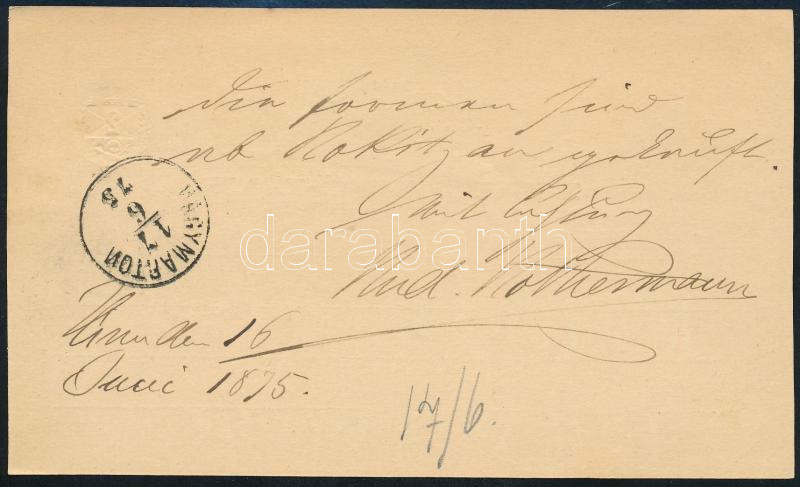 die Formen sind
ab Rokitzan gekauft.
Mit Achtung
Rud. Rothermann
Wien den 16
Juni 1875.
NAGYMARTON
17
6
75
17/6.
darabanth